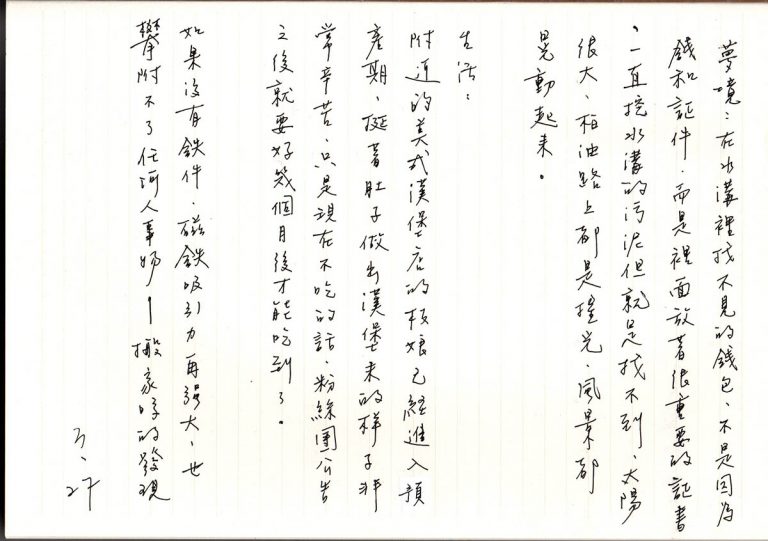 夢境：在水溝裡找不見的錢包、不是因為
錢和証件、而是裡面放著很重要的証書
、一直挖水溝的污泥但就是找不到、太陽
很大、柏油路上都是搖光、風景都
晃動起來。
生活：
附近的美式漢堡店的板娘已經進入預
產期、挺著肚子做出漢堡來的樣子非
常辛苦、只是現在不吃的話、粉絲團公告
之後就要好幾個月後才能吃到了。
如果沒有鉄件、磁鉄吸引力再強大、也
攀附不了任何人事物－搬家時的發現
3、27